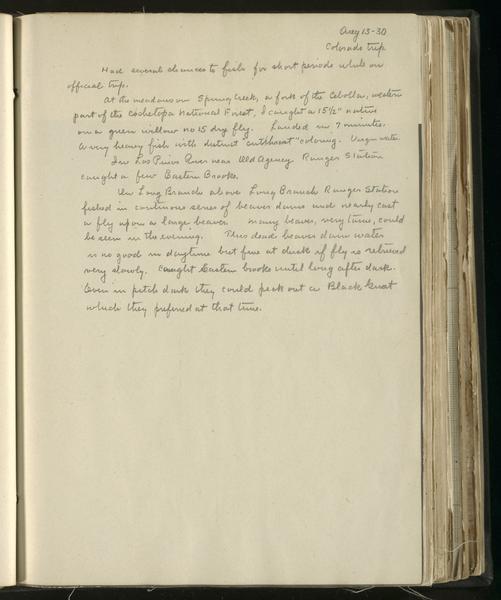 Aug 15-30
Colorado trip
Had several chances to fish for short periods while on
official trip.
At the meadows on Spring Creek, a fork of the Cebolla, western
part of the Cochetopa National Forest, I caught a 15½" native
on a green willow no 15 dry fly. Landed in 7 minutes.
A very heavy fish with distinct "cutthroat" coloring. Virgin water.
In Los Pinos River near Old Agency Ranger Station
caught a few Eastern Brooks.
In Long Branch above Long Branch Ranger Station
fished in continous series of beaver dams and nearly cast
a fly upon a large beaver. Many beaver, very tame, could
be seen in the evening. This dead beaver dam water
is no good in daytime but fine at dusk if fly is retrieved
very slowly. Caught Eastern brooks until long after dark.
Even in pitch dark they could peck out a Black Gnat
which they preferred at that time.